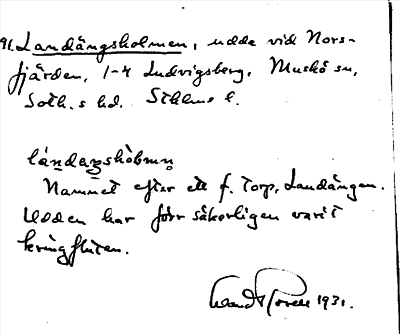 91. Landängsholmen, udde vid Nors-
fjärden, 1-4 Ludvigsberg, Muskö sn,
Soth.s hd. Sthlms l.
lándaŋshòlmən
Namnet efter ett f. torp, Landängen.
Udden har förr säkerligen varit
kringfluten.
1931.